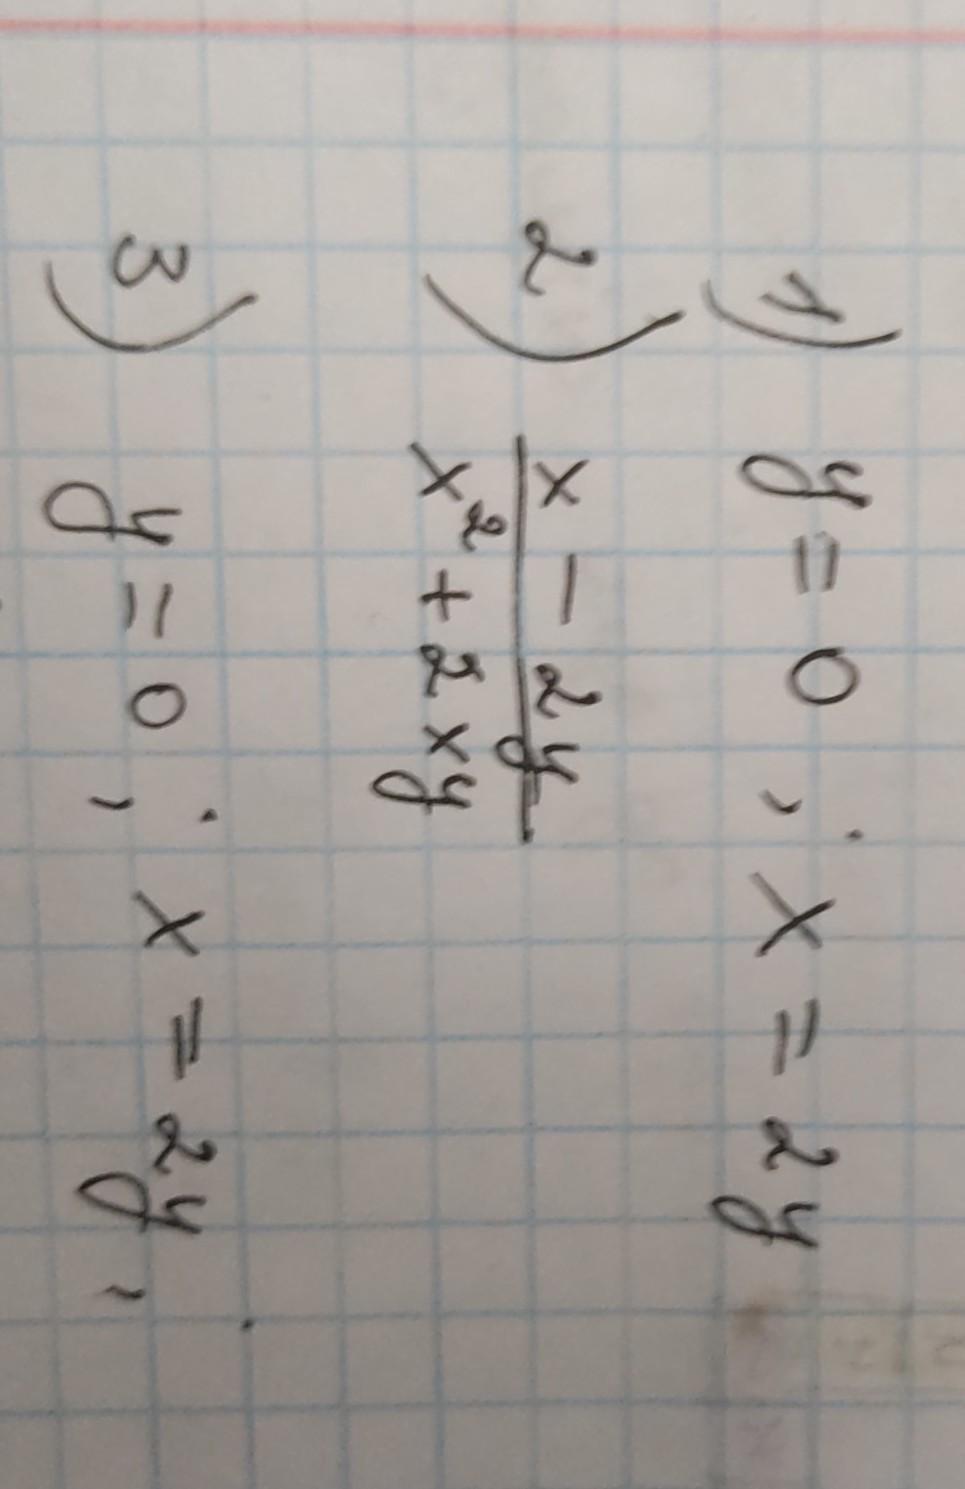 1) y = 0 ; x = 2y
2) \frac{x - 2y}{x^2 + 2xy}
3) y = 0 ; x = 2y ;